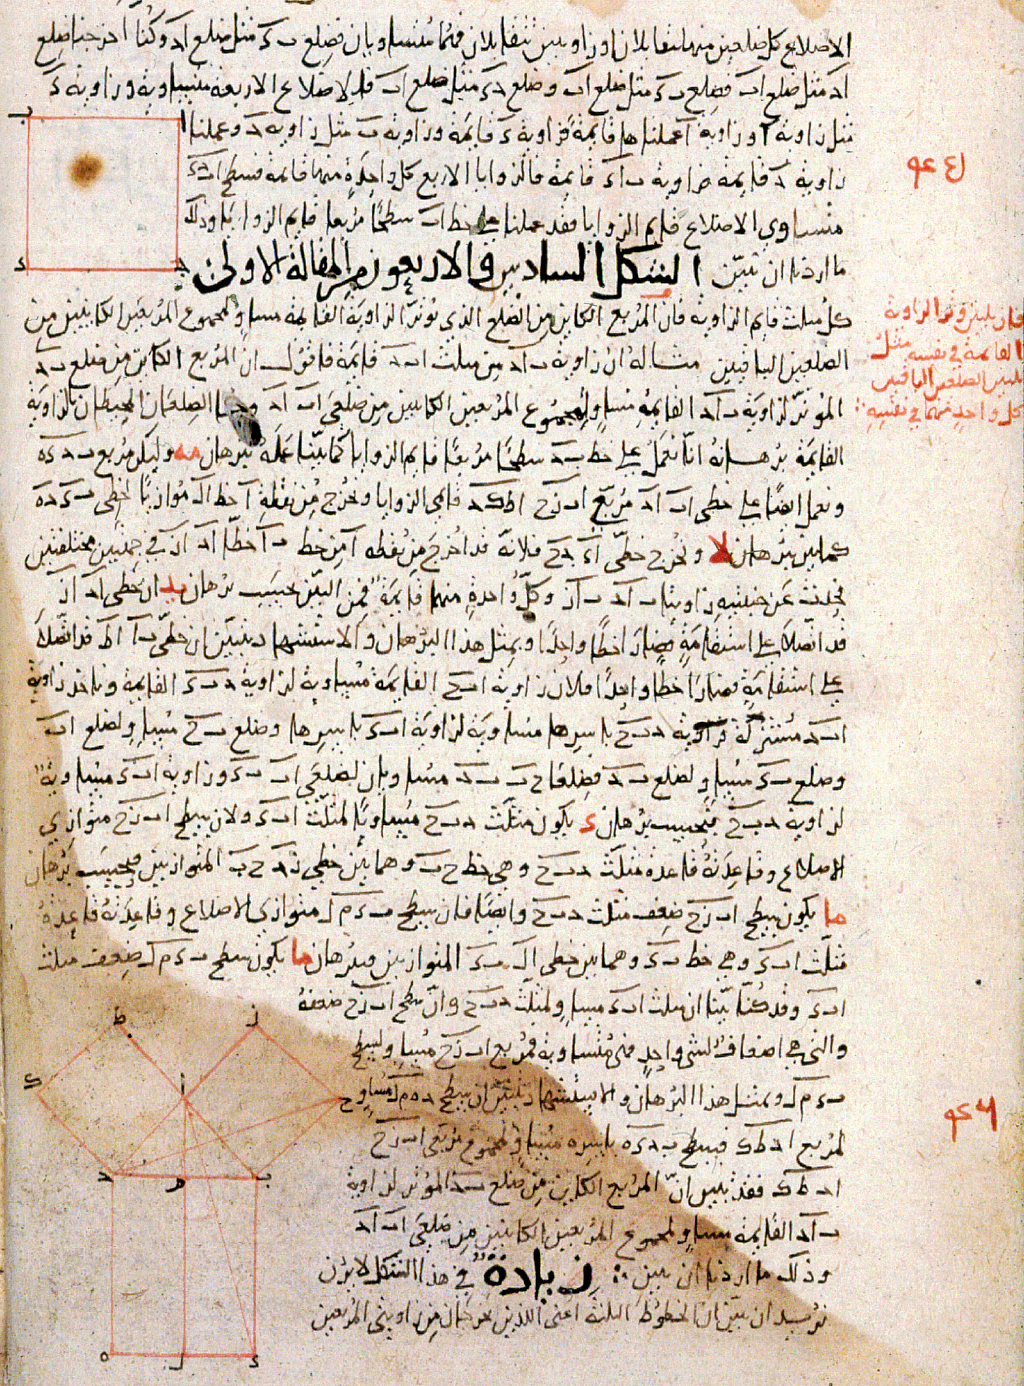 الاضلاع كل ضلعين منها متقابلان او زاويتين تتقابلان فهما متساويان فضلع ب ج مثل ضلع ا د وكنا اخرجنا ضلع
ا د مثل ضلع ا ب فضلع ب ج مثل ضلع ا ب وضلع د ج مثل ضلع ا ب فالاضلاع الاربعة متساوية وزاوية ج
مثل زاوية ا وزاوية ا عملناها قايمة فزاوية ج قايمة وزاوية ب مثل زاوية د وعملنا
زاوية د قايمة فزاوية ب قايمة فالزوايا الاربع كل واحدة منها قايمة فسطح
متساوي الاضلاع قايم الزوايا فقد عملنا على خط ا ب سطحا مربعا قايم الزوايا وذلك
ما اردنا ان نبين الشكل السادس والاربعون من المقالة الاولى
كل مثلث قايم الزاوية فان المربع الكاين من الضلع الذي يوتر الزاوية القايمة مساو لمجموع المربعين الكاينين من
الضلعين الباقيين مثاله ان زاوية ب ا د من مثلث ا ب د قايمة فاقول ان المربع الكاين من ضلع ب د
الموتر لزاوية ب ا د القايمة مساو لمجموع المربعين الكاينين من ضلعي ا ب ا د وهما الضلعان المحيطان بالزاوية
القايمة برهانه انا نعمل على خط ب د سطحا مربعا قايم الزوايا كما بينا عمله ببرهان مه وليكن مربع ب د ج ه
ونعمل ايضا على خطي ا ب ا د مربعي ا ب ز ح ا ط ك د قايمي الزوايا ونخرج من نقطة ا خط ا ل موازيا لخطي ب ج د ه
كما بين ببرهان لا ونخرج خطي ا ج د ح فلانه قد اخرج من نقطه ا من خط ب ا خطا ا د ا ز في جهتين مختلفتين
فحدث عن جنبتيه زاويتا ب ا د ب ا ز وكل واحدة منهما قايمة فمن البين بحسب برهان يد ان خطي ا د ا ز
قد اتصلا على استقامة وصارا خطا واحدا وبمثل هذا البرهان والاستشهاد نبين ان خطي ب ا ا ط قد اتصلا
على استقامة وصارا خطا واحدا فلان زاوية ا ب ح القايمة مساوية لزاوية د ب ج القايمة وناخذ زاوية
ا ب د مشتركة فزاوية د ب ح باسرها مساوية لزاوية ا ب ج باسرها وضلع ب ح مساو لضلع ا ب
وضلع ب ج مساو لضلع ب د فضلعا ح ب ب د مساويان لضلعي ا ب ب ج وزاوية ا ب ج مساوية
لزاوية د ب ح فبحسب برهان د يكون مثلث د ب ح مساويا لمثلث ا ب ج ولان سطح ا ب ز ح متوازي
الاضلاع وقاعدته قاعدة مثلث د ب ح وهي خط ح ب وهما بين خطي ز د ح ب المتوازيين فبحسب برهان
ما يكون سطح ا ب ز ح ضعف مثلث د ب ح وايضا فان سطح ب ج م ل متوازي الاضلاع وقاعدته قاعدة
مثلث ا ب ج وهي خط ب ج وهما بين خطي ا ل ب ج المتوازيين فببرهان ما يكون سطح ب ج م ل ضعف مثلث
ا ب ج وقد كنا بينا ان مثلث ا ب ج مساو لمثلث د ب ح وان سطح ا ب ز ح ضعفه
والتي هي اضعاف لشي واحد فهي متساوية فمربع ا ب ز ح مساو لسطح
ب ج م ل وبمثل هذا البرهان والاستشهاد نبين ان سطح د ه م ل مساو
لمربع ا د ط ك فسطح ب د ج ه باسره مساو لمجموع مربعي ا ب ز ح
ا د ط ك فقد تبين ان المربع الكاين من ضلع ب د الموتر لزاوية
ب ا د القايمة مساو لمجموع المربعين الكاينين من ضلعي ا ب ا د
وذلك ما اردنا ان نبين زيادة في هذا الشكل لايرن
نريد ان نبين ان الخطوط الثلثة اعني اللذين يخرجان من زاويتي المربعين
وتر الزاوية
القايمة في نفسه مثل
الضلعين الباقيين
كل واحد منهما في نفسه